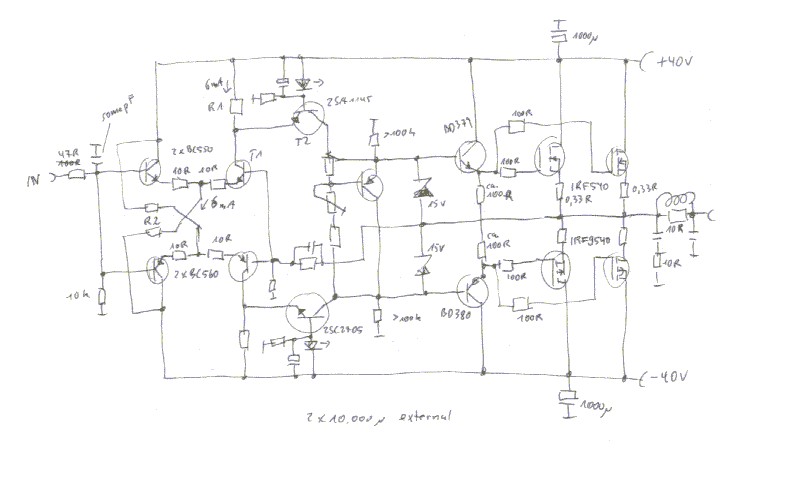 1000µ
+40V
6mA
R1
2SA1145
T2
47R
100R
2xBC550
10R 10R
T1
>100k
BD379
100R
100R
IN
6mA
R2
15V
ca.
100R
IRF540
0,33R
0,33R
10R 10R
15V
ca.
100R
IRF9540
10R
2xBC560
10k
100R
10R
2SC2705
>100k
BD380
100R
-40V
1000µ
2 x 10,000µ external